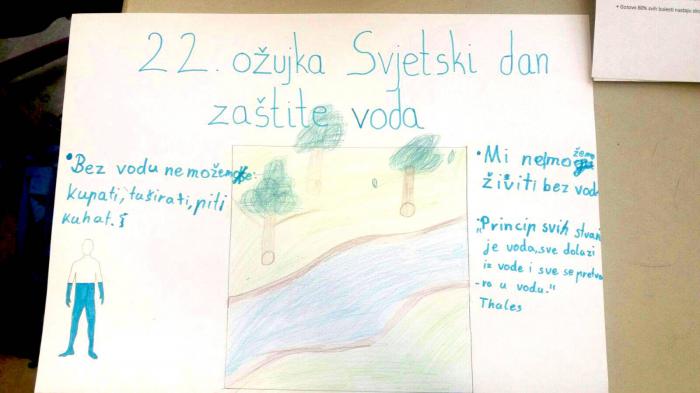 22. ožujka Svjetski dan
zaštite voda
• Bez vodu ne možemo:
kupati, tuširati, piti
kuhat. i
• Mi ne možemo
živiti bez vod
"Princip svih stvari
je voda, sve dolazi
iz vode i sve se pretva
-ra u vodu."
Thales
• Gotovo 80% svih bolesti nastaju